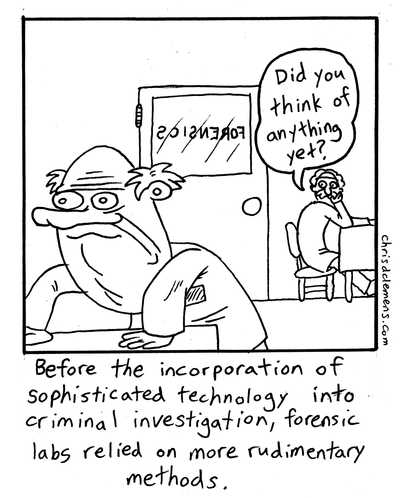 FORENSICS
Did you
think of
anything
yet?
chrisdclemens.com
Before the incorporation of
sophisticated technology into
criminal investigation, forensic
labs relied on more rudimentary
methods.